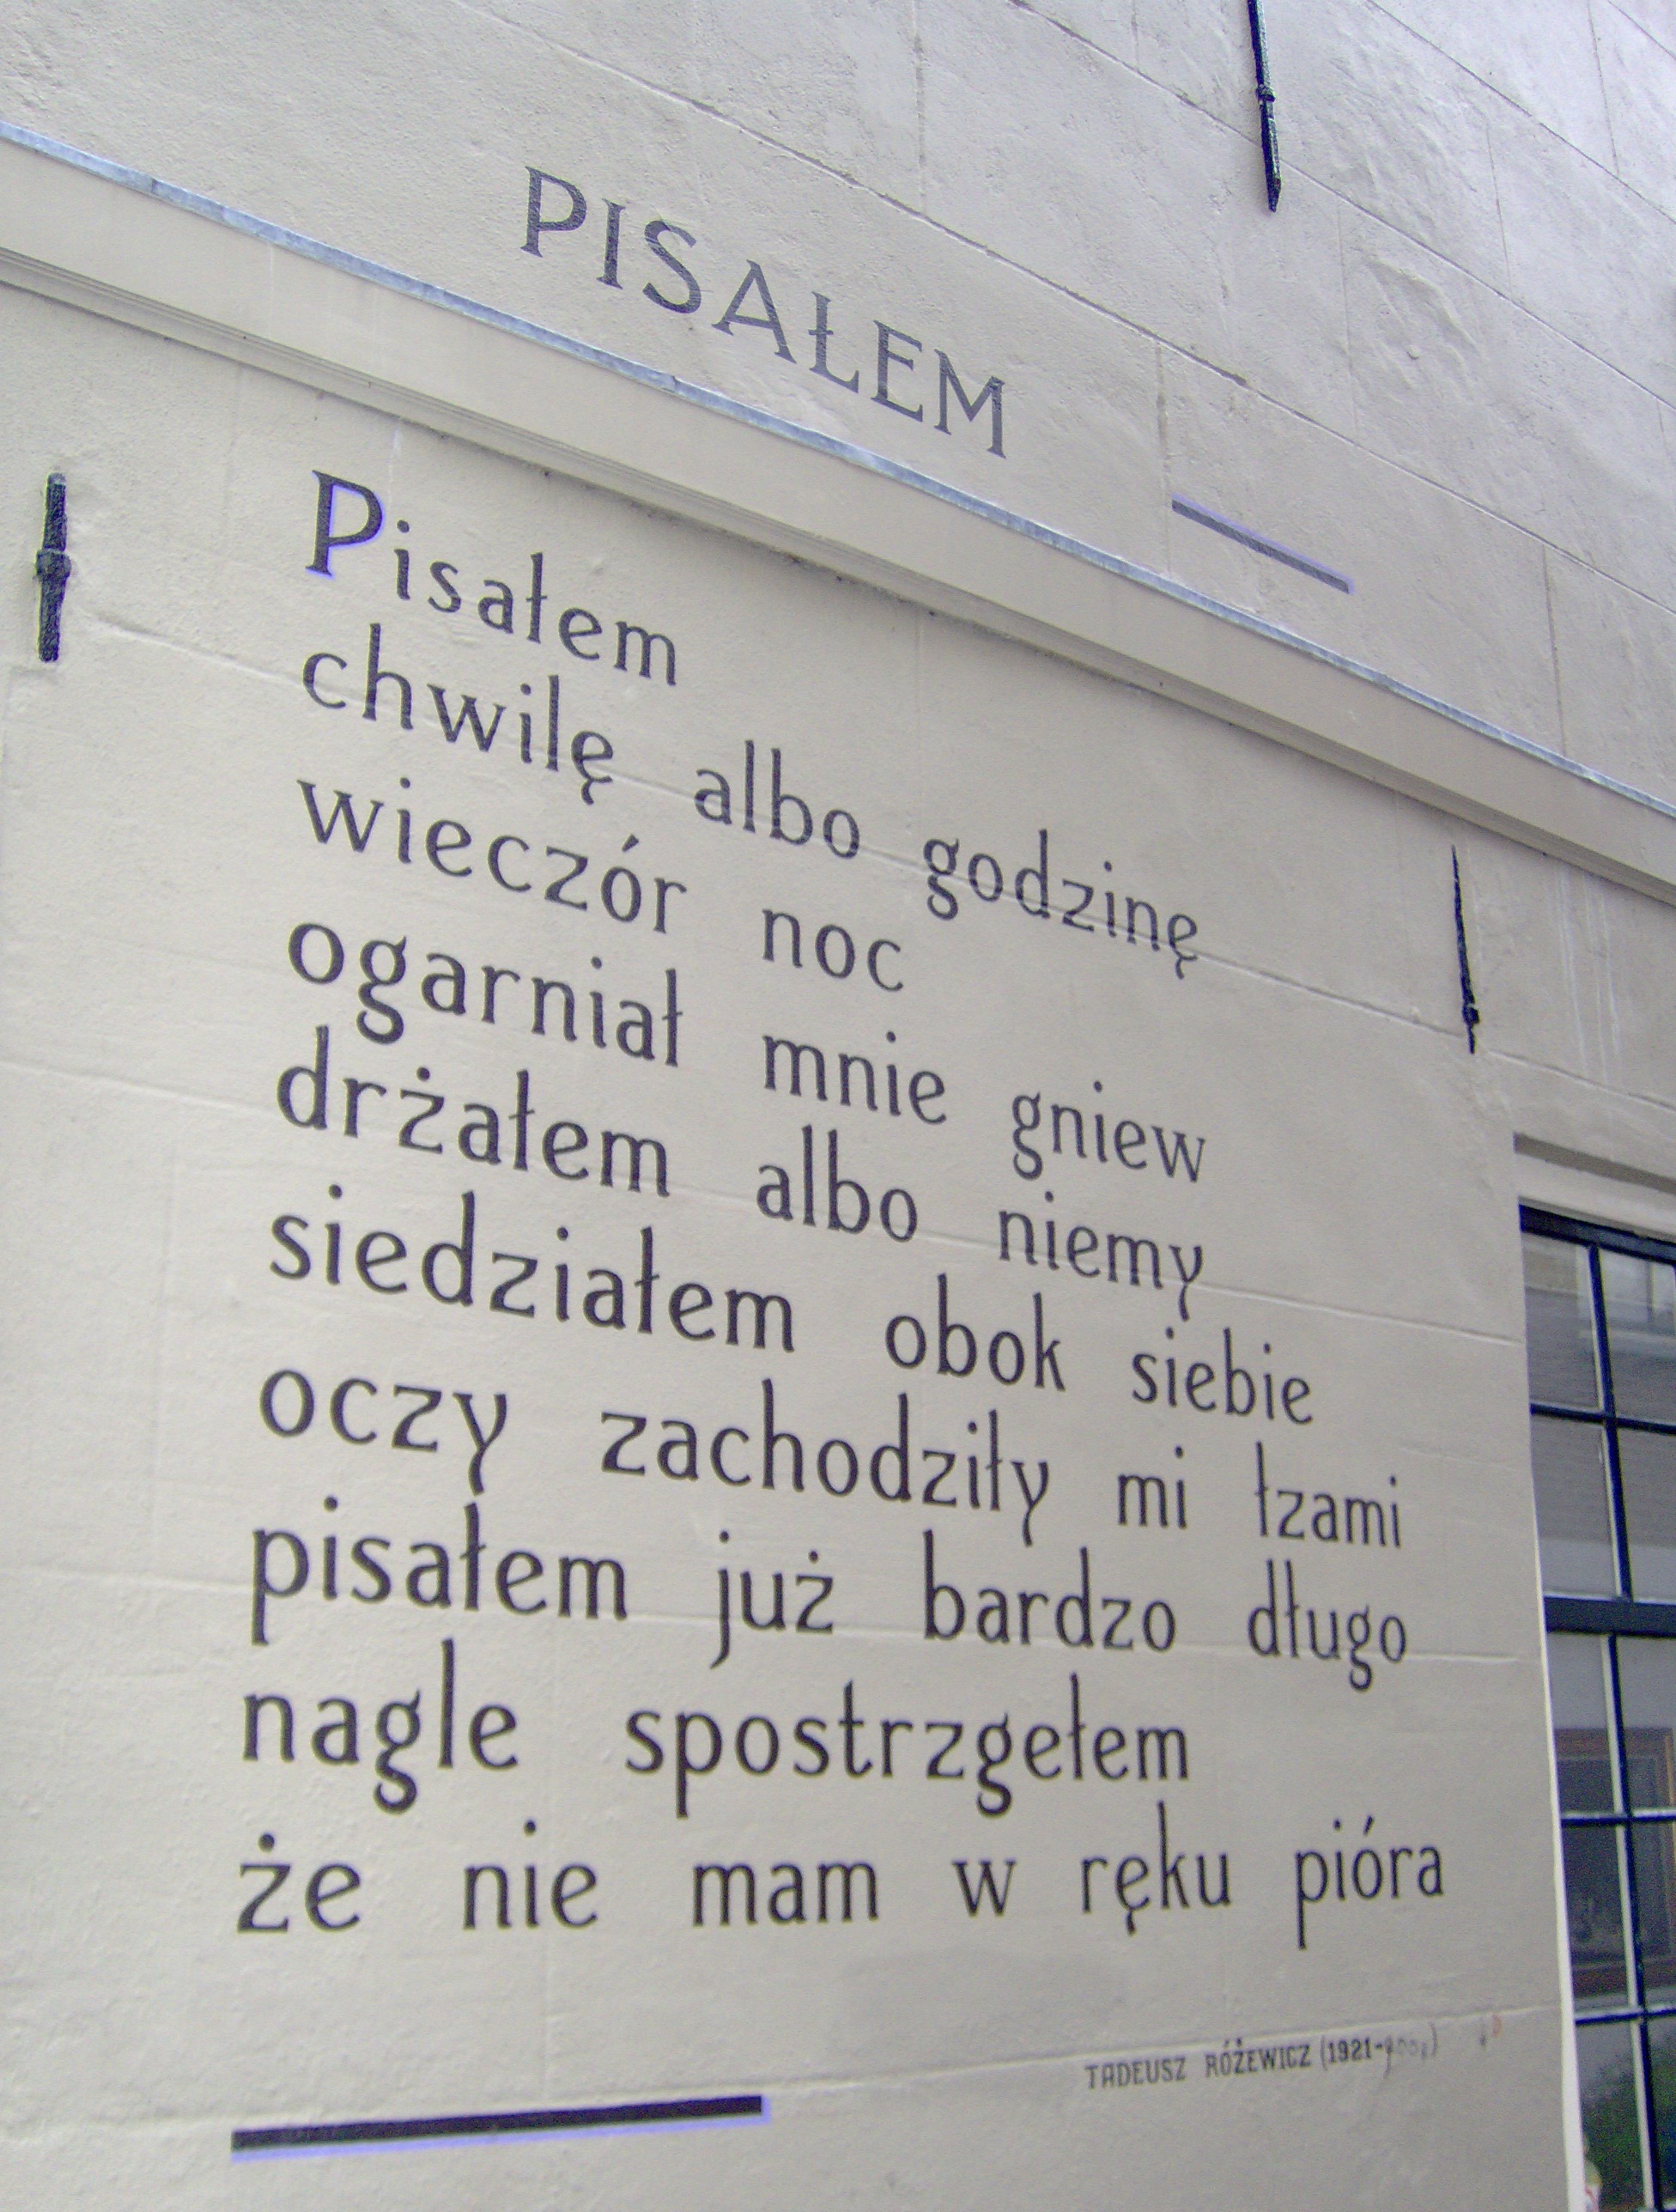 PISAŁEM
Pisałem
chwilę albo godzinę
wieczór noc
ogarniał mnie gniew
drżałem albo niemy
siedziałem obok siebie
oczy zachodziły mi łzami
pisałem już bardzo długo
nagle spostrzgełem
że nie mam w ręku pióra
TADEUSZ RÓŻEWICZ (1921-